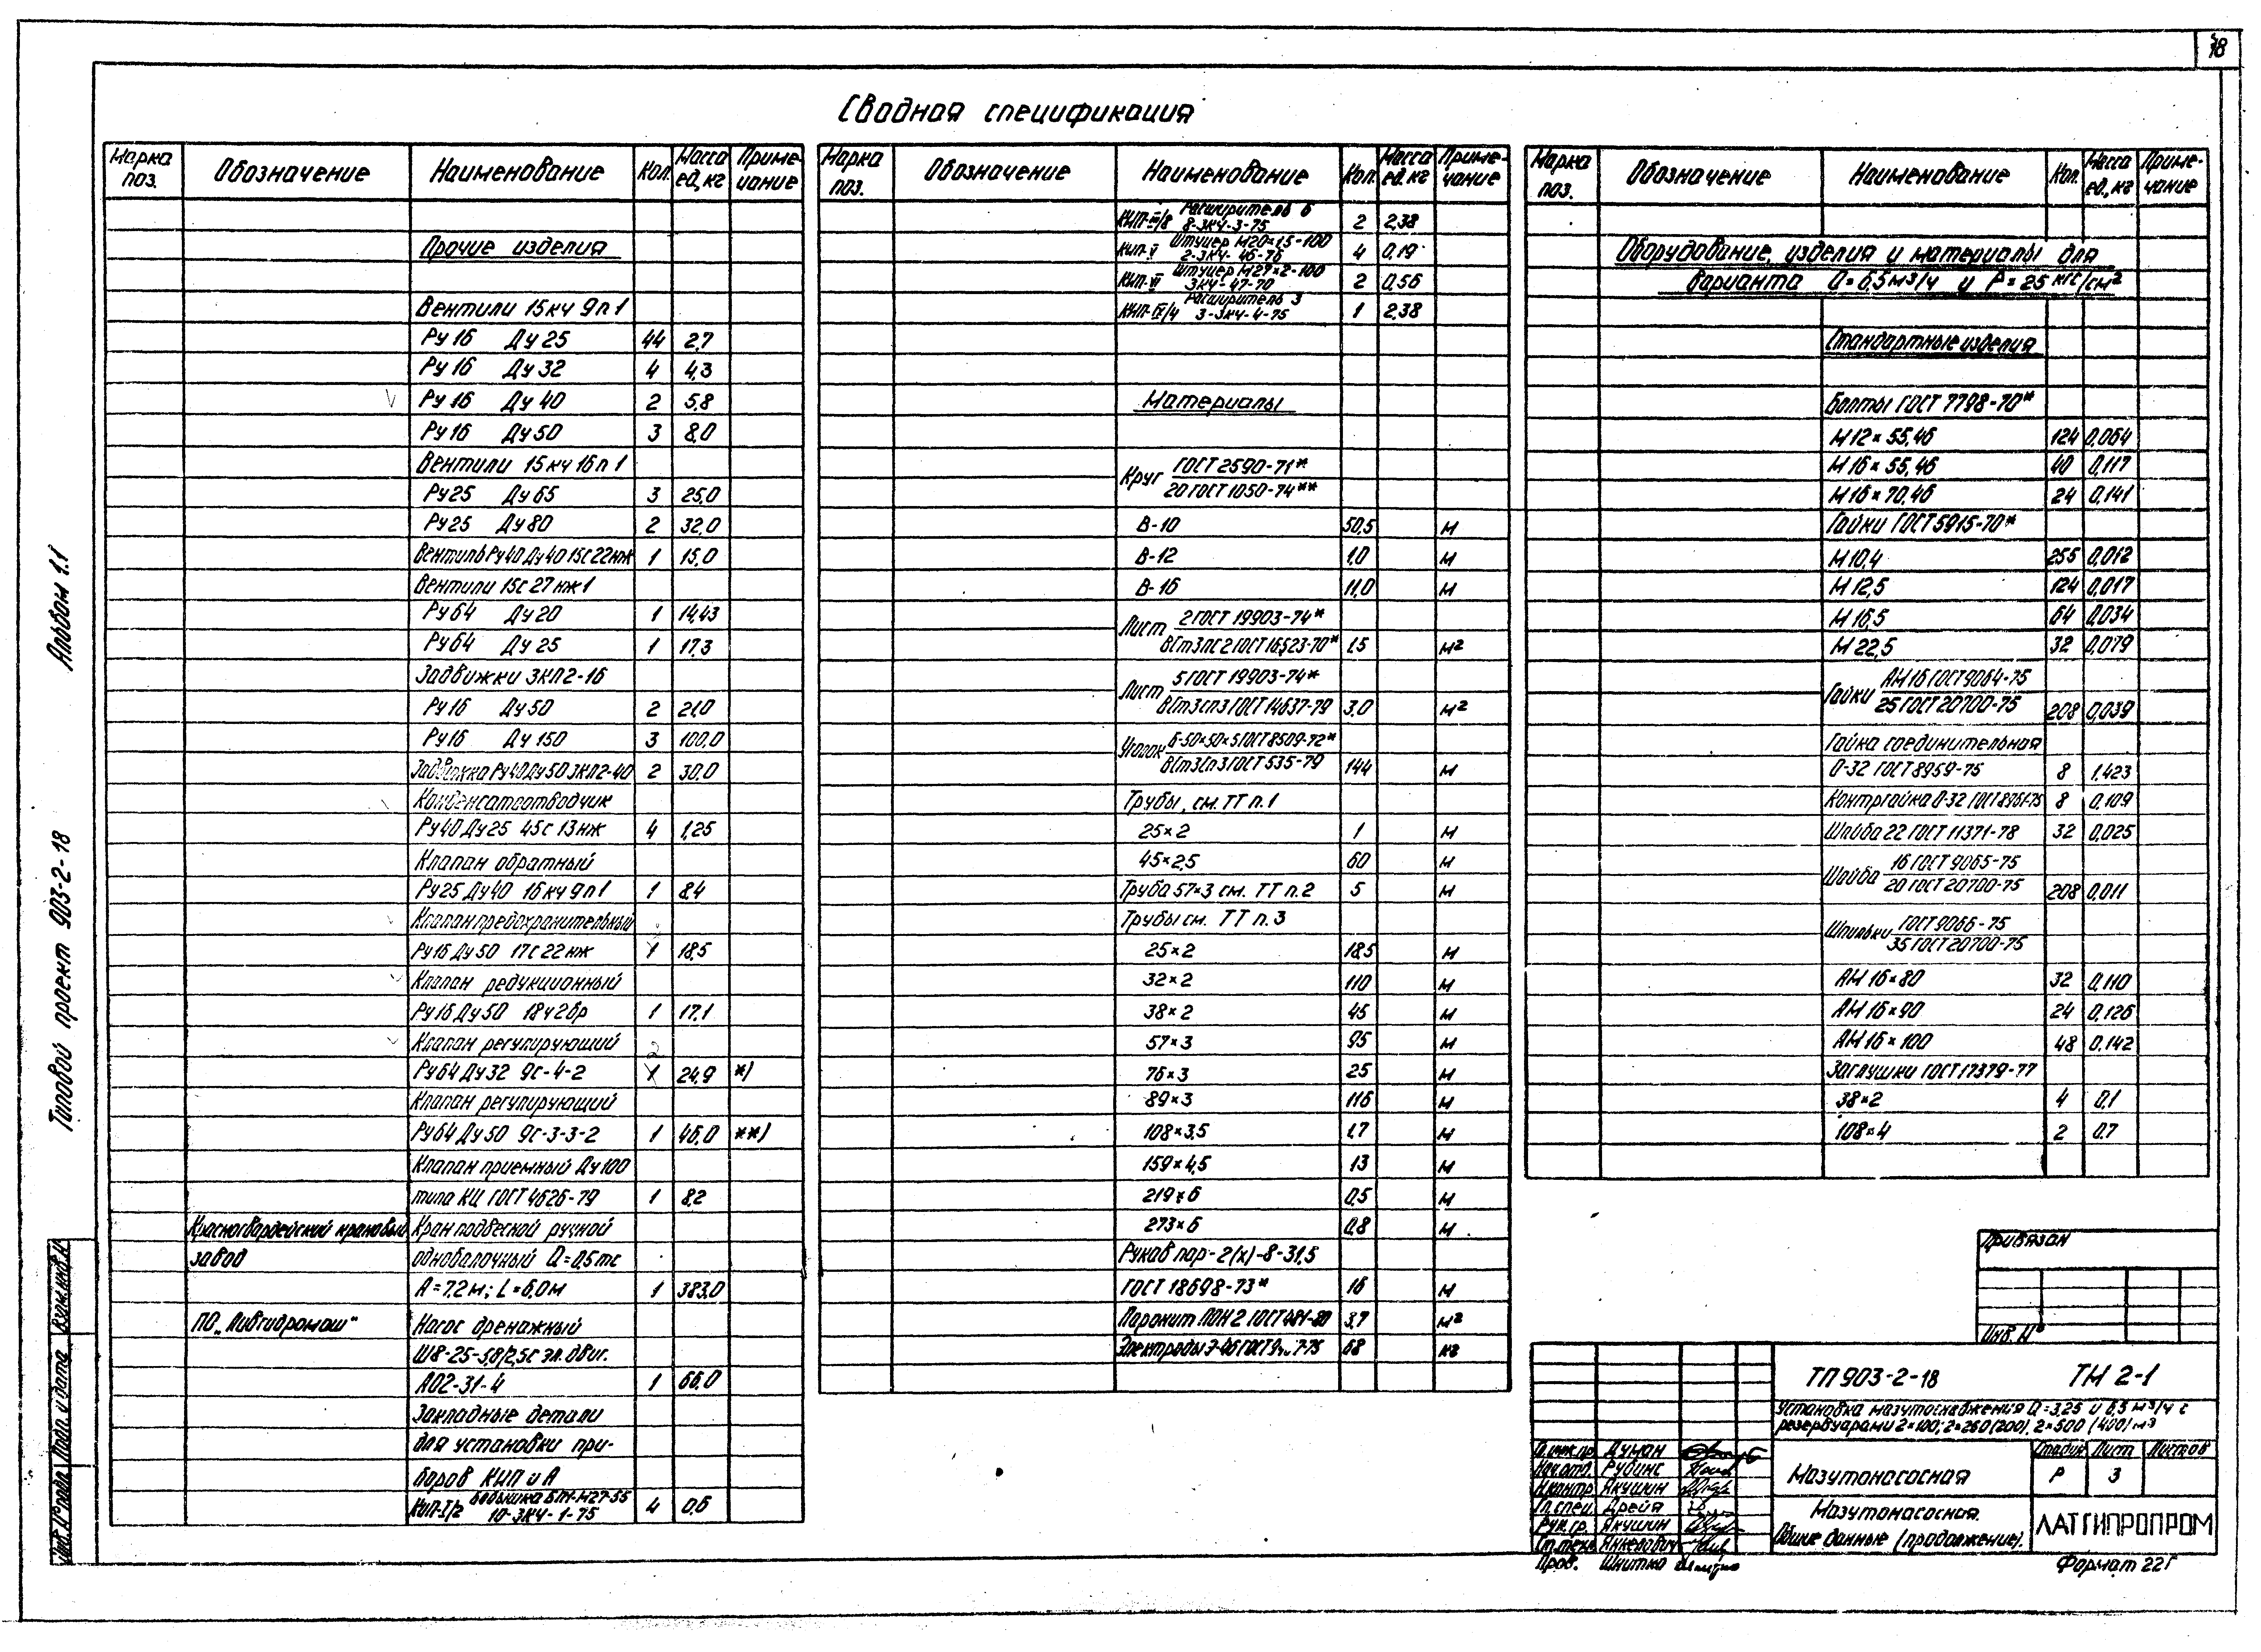 18
Сводная спецификация
Марка поз. Обозначение Наименование Кол. Масса ед, кг Примечание
Прочие изделия
Вентили 15кч 9п1
Ру 16 Ду 25 44 2,7
Ру 16 Ду 32 4 4,3
Ру 16 Ду 40 2 5,8
Ру 16 Ду 50 3 8,0
Вентили 15кч 16п1
Ру 25 Ду 65 3 25,0
Ру 25 Ду 80 2 32,0
Вентиль Ру 40 Ду 40 15с 22нж 1 15,0
Вентили 15с 27нж1
Ру 64 Ду 20 1 14,43
Ру 64 Ду 25 1 17,3
Задвижки ЗКЛ2-16
Ру 16 Ду 50 2 21,0
Ру 16 Ду 150 3 100,0
Задвижка Ру 40 Ду 50 ЗКЛ2-40 2 30,0
Конденсатоотводчик
Ру 40 Ду 25 45с 13нж 4 1,25
Клапан обратный
Ру 25 Ду 40 16кч 9п1 1 8,4
Клапан предохранительный
Ру 16 Ду 50 17с 22нж 1 18,5
Клапан редукционный
Ру 16 Ду 50 18ч2бр 1 17,1
Клапан регулирующий
Ру 64 Ду 32 9с-4-2 1 24,9 *)
Клапан регулирующий
Ру 64 Ду 50 9с-3-3-2 1 46,0 **)
Клапан приемный Ду 100
типа КЦ ГОСТ 4626-79 1 8,2
Красногвардейский крановый Кран подвесной ручной
завод однобалочный Q=0,5тс
А=7,2м; L=6,0м 1 383,0
ПО „Ливгидромаш“ Насос дренажный
Ш8-25-5,8/2,5 с эл. двиг.
АО2-31-4 1 66,0
Закладные детали
для установки при-
боров КИП и А
КИП-I/2 Бобышка БП1-М27-55 10-ЗКЧ-1-75 4 0,6
Марка поз. Обозначение Наименование Кол. Масса ед. кг Примечание
КИП-III/8 Расширитель 6 8-ЗКЧ-3-75 2 2,38
КИП-V Штуцер М20×1,5-100 2-ЗКЧ-46-76 4 0,19
КИП-VI Штуцер М27×2-100 ЗКЧ-47-70 2 0,56
Расширитель 3 3-ЗКЧ-4-75 1 2,38
Материалы
Круг ГОСТ 2590-71*
20 ГОСТ 1050-74**
В-10 50,5 м
В-12 1,0 м
В-16 11,0 м
Лист 2 ГОСТ 19903-74*
ВСт3пс2 ГОСТ 16523-70* 1,5 м²
Лист 5 ГОСТ 19903-74*
ВСт3сп3 ГОСТ 14637-79 3,0 м²
Уголок Б-50×50×5 ГОСТ 8509-72*
ВСт3сп3 ГОСТ 535-79 144 м
Трубы, см. ТТ п.1
25×2 1 м
45×2,5 60 м
Труба 57×3 см. ТТ п.2 5 м
Трубы см. ТТ п.3
25×2 18,5 м
32×2 110 м
38×2 45 м
57×3 95 м
76×3 25 м
89×3 116 м
108×3,5 1,7 м
159×4,5 13 м
219×6 0,5 м
273×6 0,8 м
Рукав пар-2(х)-8-31,5
ГОСТ 18698-73* 16 м
Паронит ПОН 2 ГОСТ 481-80 3,7 м²
Электроды Э-46 68 кг
Марка поз. Обозначение Наименование Кол. Масса ед., кг Примечание
Оборудование, изделия и материалы для
варианта Q=6,5 м³/ч и Р=25 кгс/см²
Стандартные изделия
Болты ГОСТ 7798-70*
М12×55.46 124 0,064
М16×55.46 40 0,117
М16×70.46 24 0,141
Гайки ГОСТ 5915-70*
М10.4 255 0,012
М12.5 124 0,017
М16.5 64 0,034
М22.5 32 0,079
Гайки АМ16 ГОСТ 9064-75
25 ГОСТ 20700-75 208 0,039
Гайка соединительная
О-32 ГОСТ 8959-75 8 1,423
Контргайка О-32 ГОСТ 8961-75 8 0,109
Шайба 22 ГОСТ 11371-78 32 0,025
Шайба 16 ГОСТ 9065-75
20 ГОСТ 20700-75 208 0,011
Шпильки ГОСТ 9066-75
35 ГОСТ 20700-75
АМ 16×80 32 0,110
АМ 16×90 24 0,126
АМ 16×100 48 0,142
Заглушки ГОСТ 17379-77
38×2 4 0,1
108×4 2 0,7
Привязан
Инв. №
ТП 903-2-18 ТМ 2-1
Установка мазутоснабжения Q=3,25 и 6,5 м³/ч с
резервуарами 2×100; 2×250(200), 2×500 (400) м³
Гл.инж.пр. Думан
Нач.отд. Рубинс
Н.контр. Якушин
Гл.спец. Дрейя
Рук.гр. Якушин
Ст.техн. Янкелович
Пров. Шнитко
Мазутонасосная
Стадия Лист Листов
Р 3
Мазутонасосная.
Общие данные (продолжение).
ЛАТГИПРОПРОМ
Формат 22Г
Альбом 1.1
Типовой проект 903-2-18
Взам. инв. №
Подп. и дата
Инв. № подл.